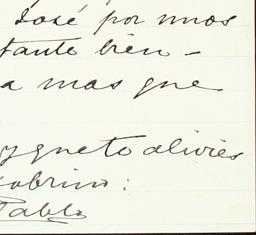 José por unos
tante bien -
a mas que
y que te alivies
sobrino:
Pablo